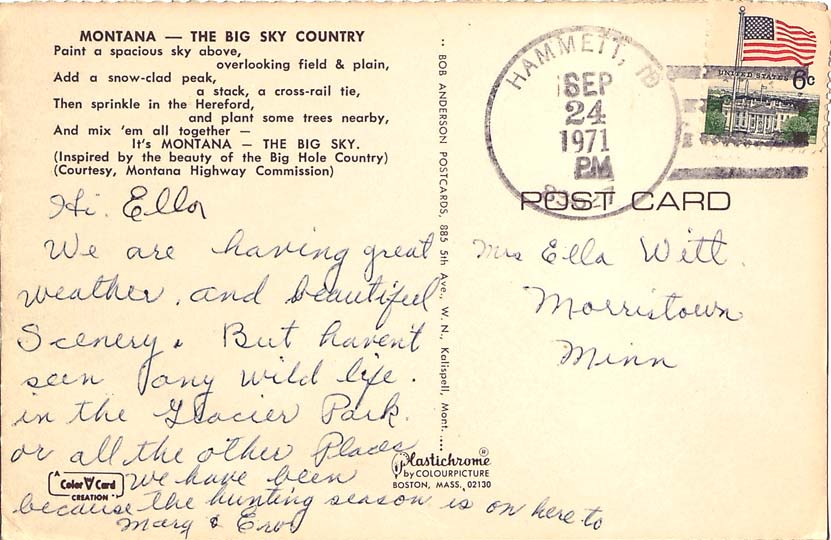 MONTANA — THE BIG SKY COUNTRY
Paint a spacious sky above,
overlooking field & plain,
Add a snow-clad peak,
a stack, a cross-rail tie,
Then sprinkle in the Hereford,
and plant some trees nearby,
And mix 'em all together —
It's MONTANA — THE BIG SKY.
(Inspired by the beauty of the Big Hole Country)
(Courtesy, Montana Highway Commission)
Hi. Ella
We are having great
weather, and beautiful
Scenery. But haven't
seen any wild life.
in the Glacier Park.
or all the other Places
we have been
because the hunting season is on here to
Marg &
A
Color Card
CREATION
BOB ANDERSON POSTCARDS, 885 5th Ave., W. N., Kalispell, Mont.
Plastichrome®
by COLOURPICTURE
BOSTON, MASS. 02130
HAMMETT, ID
SEP
24
1971
PM
83627
UNITED STATES 6c
POST CARD
Mrs Ella Witt.
Morristown
Minn